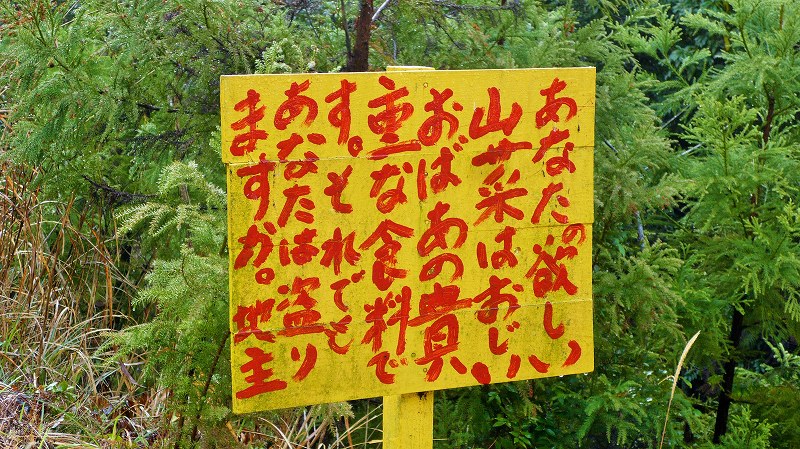 あなたの欲しい
山菜はおじい
おばあの貴
重な食料で
す。それでも
あなたは盗り
ますか。地主